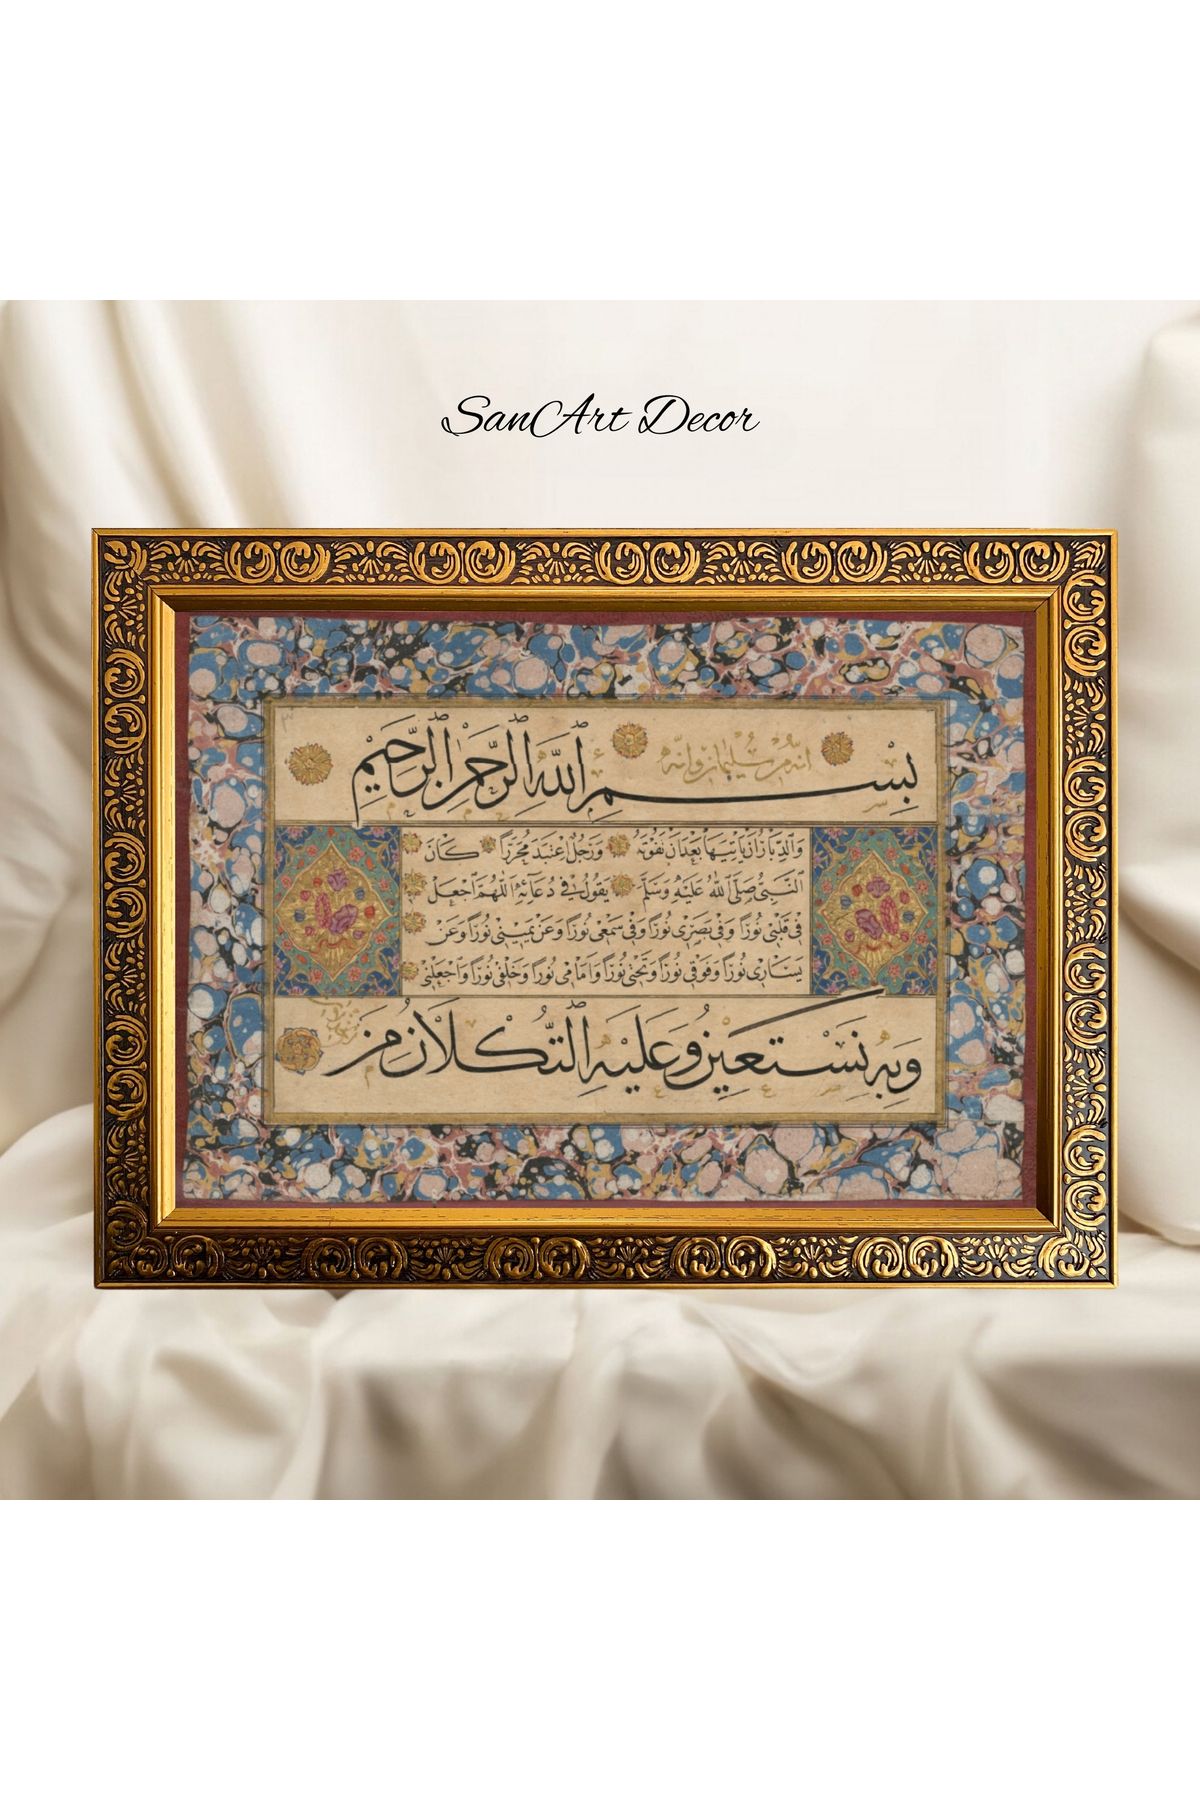 SanArt Decor
انه من سليمان وانه
بسم الله الرحمن الرحيم
والدبار ان ياتيها بعد ان تفوته ورجل اعتبد محررا كان
النبي صلى الله عليه وسلم يقول في دعائه اللهم اجعل
في قلبي نورا وفي بصري نورا وفي سمعي نورا وعن يميني نورا وعن
يساري نورا وفوقي نورا وتحتي نورا وامامي نورا وخلفي نورا واجعلني
وبه نستعين وعليه التكلان من